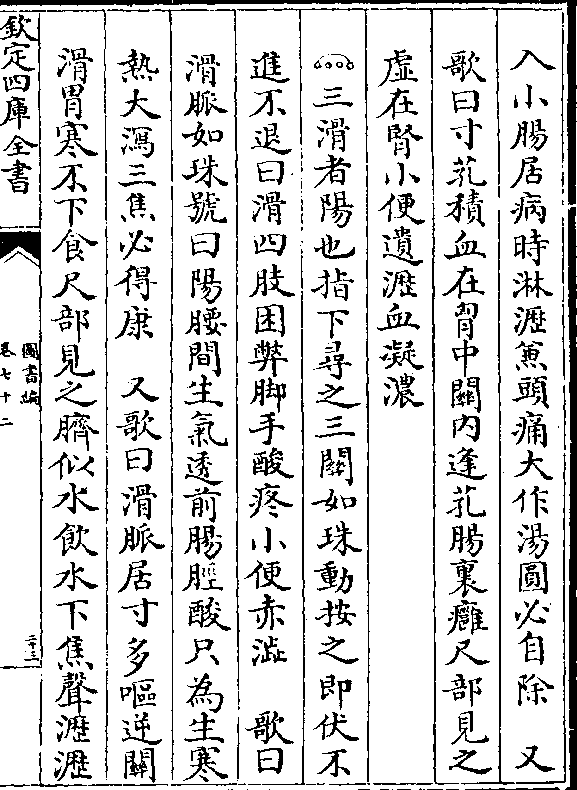 入小腸居病時淋瀝兼頭痛大作湯圓必自除　又
歌曰寸芤積血在胷中關內逢芤腸裏癰尺部見之
虛在腎小便遺瀝血凝濃
三滑者陽也指下尋之三關如珠動按之即伏不
進不退曰滑四肢困弊脚手酸疼小便赤澁　歌曰
滑脈如珠號曰陽腰間生氣透前腸脛酸只為生寒
熱大瀉三焦必得康　又歌曰滑脈居寸多嘔逆關
滑胃寒不下食尺部見之臍似水飲水下焦聲瀝瀝
欽定四庫全書
圖書編
卷七十二
二十三